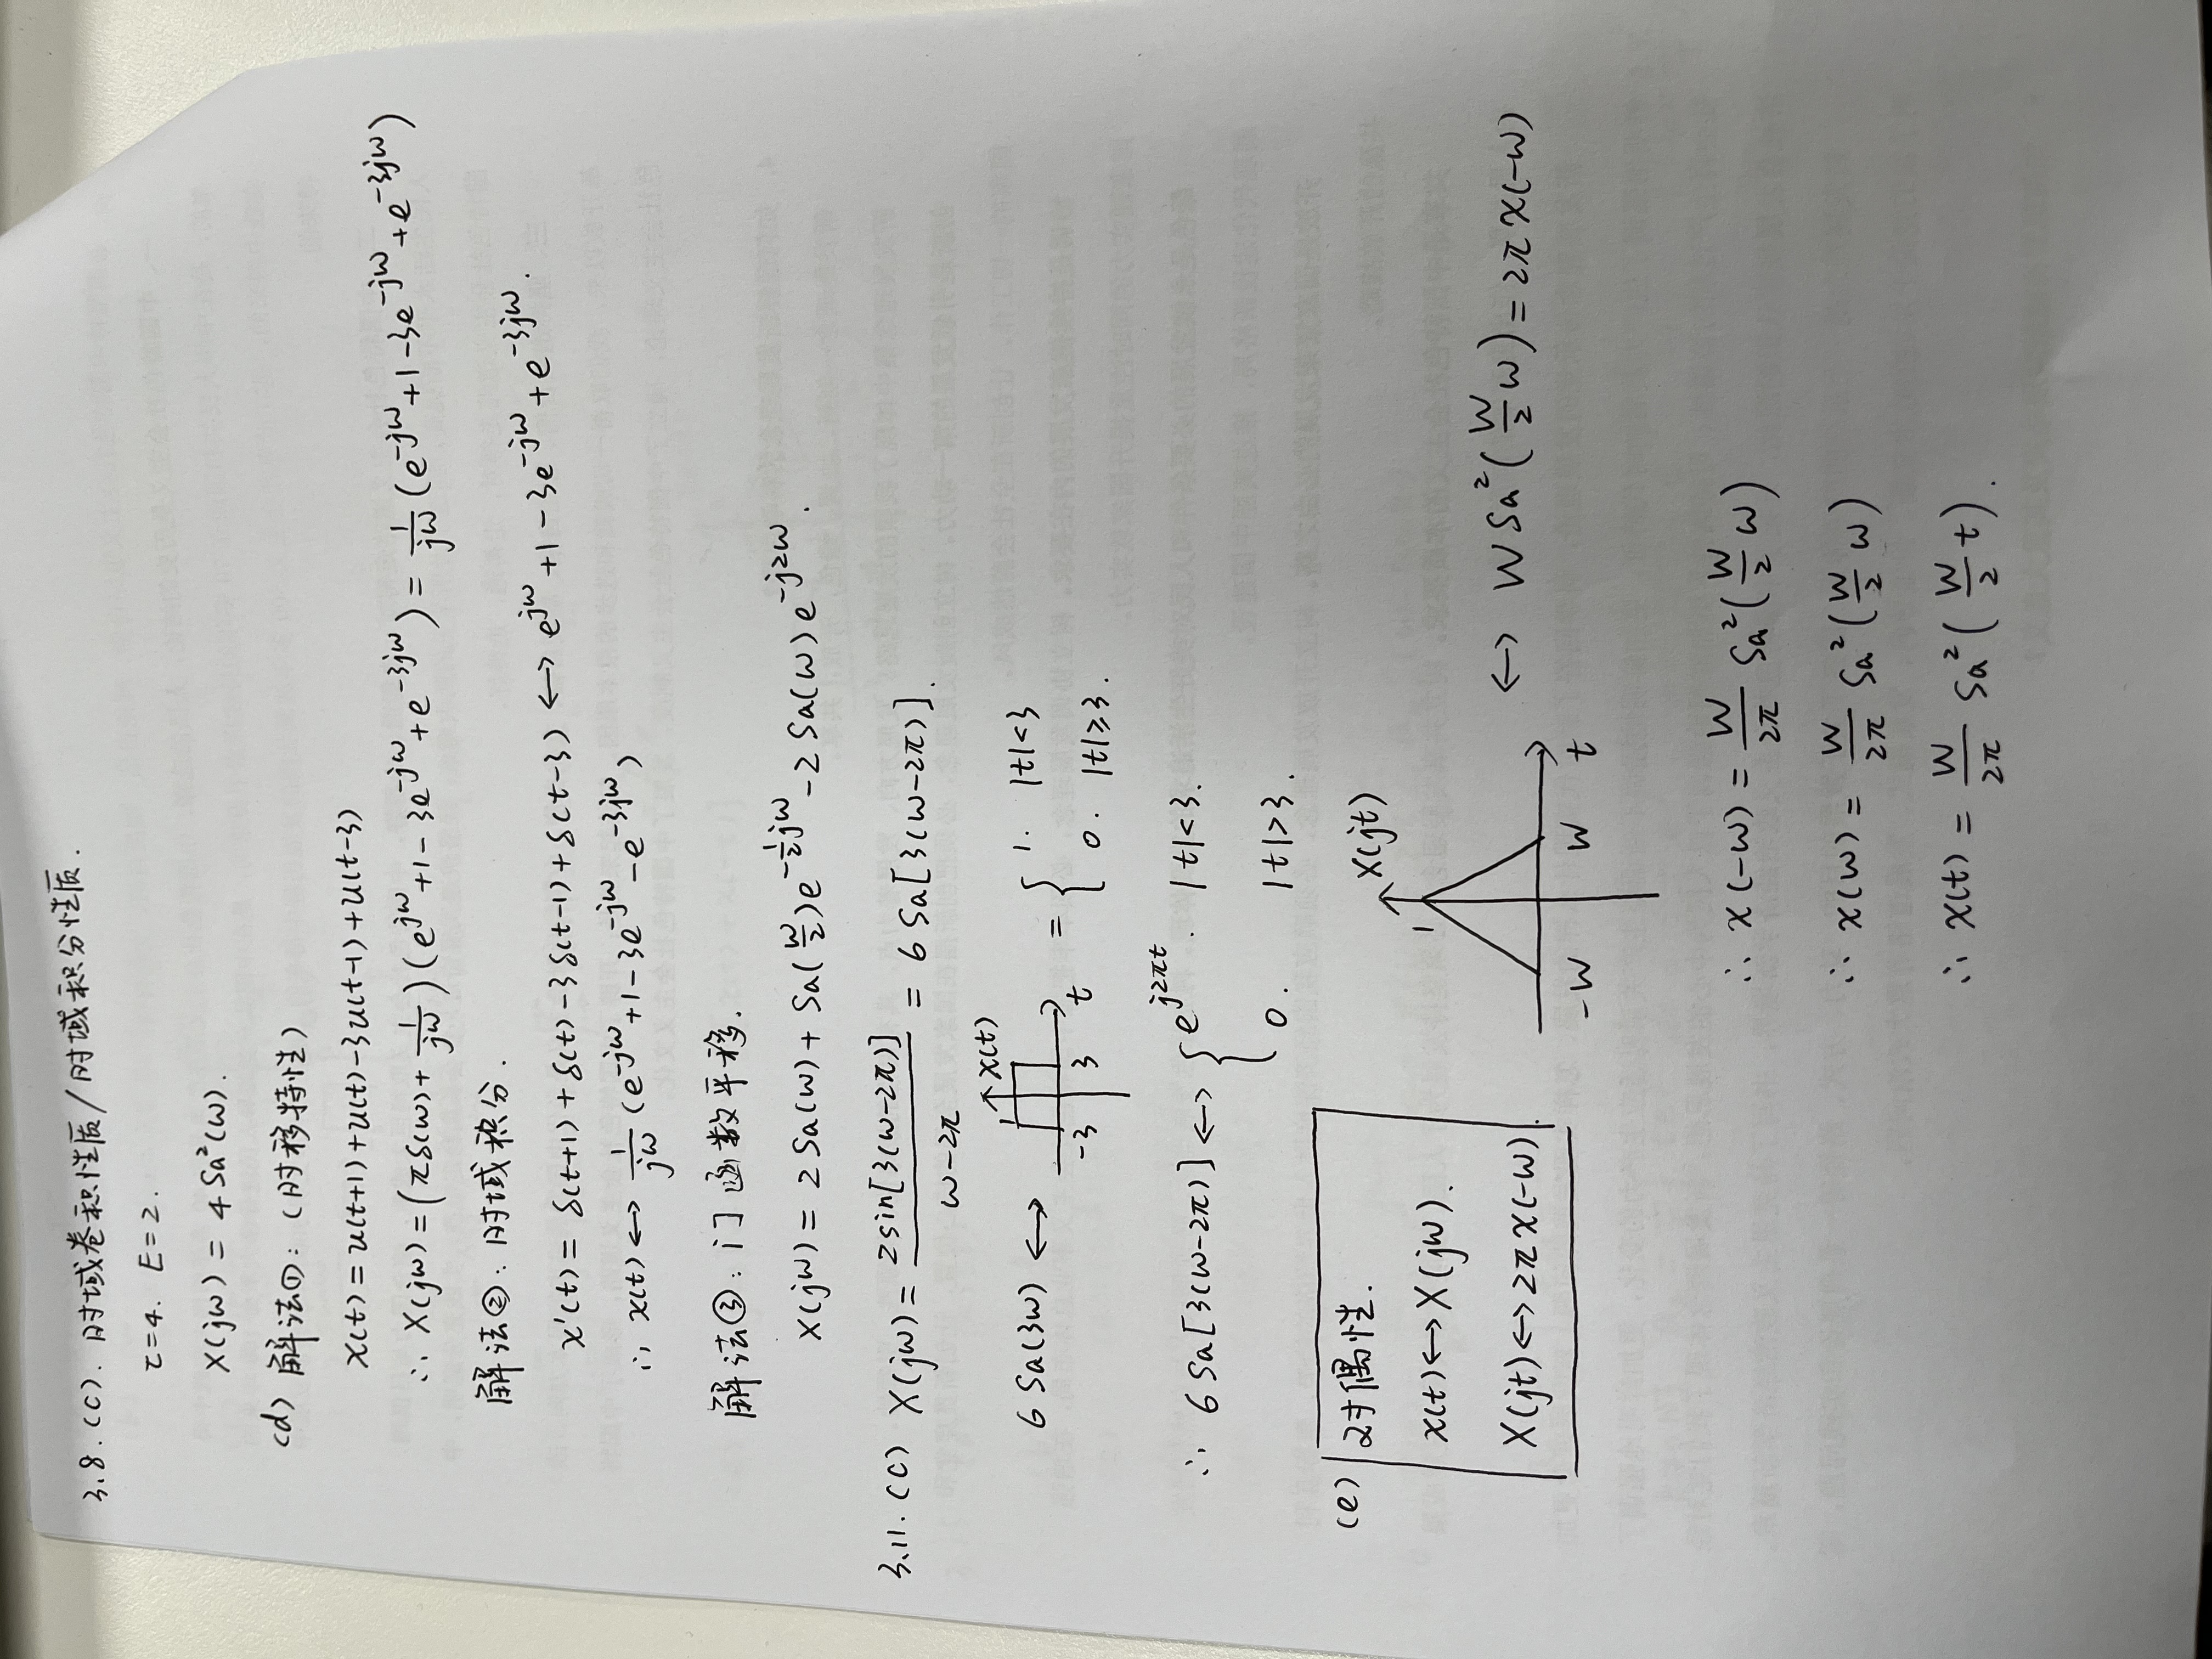 3.8.(c). 时域卷积性质/时域积分性质.
τ=4. E=2.
X(jω) = 4 Sa²(ω).
(d) 解法①：(时移特性)
x(t) = u(t+1)+u(t)-3u(t-1)+u(t-3)
∴ X(jω) = (πδ(ω)+ 1/jω)(e^{jω}+1-3e^{-jω}+e^{-3jω}) = 1/jω (e^{-jω}+1-3e^{-jω}+e^{-3jω})
解法②：时域积分.
x'(t) = δ(t+1)+δ(t)-3δ(t-1)+δ(t-3) ↔ e^{jω}+1-3e^{-jω}+e^{-3jω}.
∴ x(t) ↔ 1/jω (e^{-jω}+1-3e^{-jω}-e^{-3jω})
解法③：门函数平移.
X(jω) = 2Sa(ω)+Sa(ω/2)e^{-1/2 jω}-2Sa(ω)e^{-j2ω}.
3.11.(c) X(jω) = 2sin[3(ω-2π)]/ω-2π = 6Sa[3(ω-2π)].
x(t)
1
6Sa(3ω) ↔ -3 3 t = { 1. |t|<3
0. |t|≥3.
∴ 6Sa[3(ω-2π)] ↔ { e^{j2πt}. |t|<3.
0. |t|>3.
(e) 对偶性.
x(t)↔X(jω).
X(jt)↔2πx(-ω).
X(jt)
1
-W W t
↔ WSa²(W/2 ω) = 2πx(-ω)
∴ x(-ω) = W/2π Sa²(W/2 ω)
∴ x(ω) = W/2π Sa²(W/2 ω)
∴ x(t) = W/2π Sa²(W/2 t).